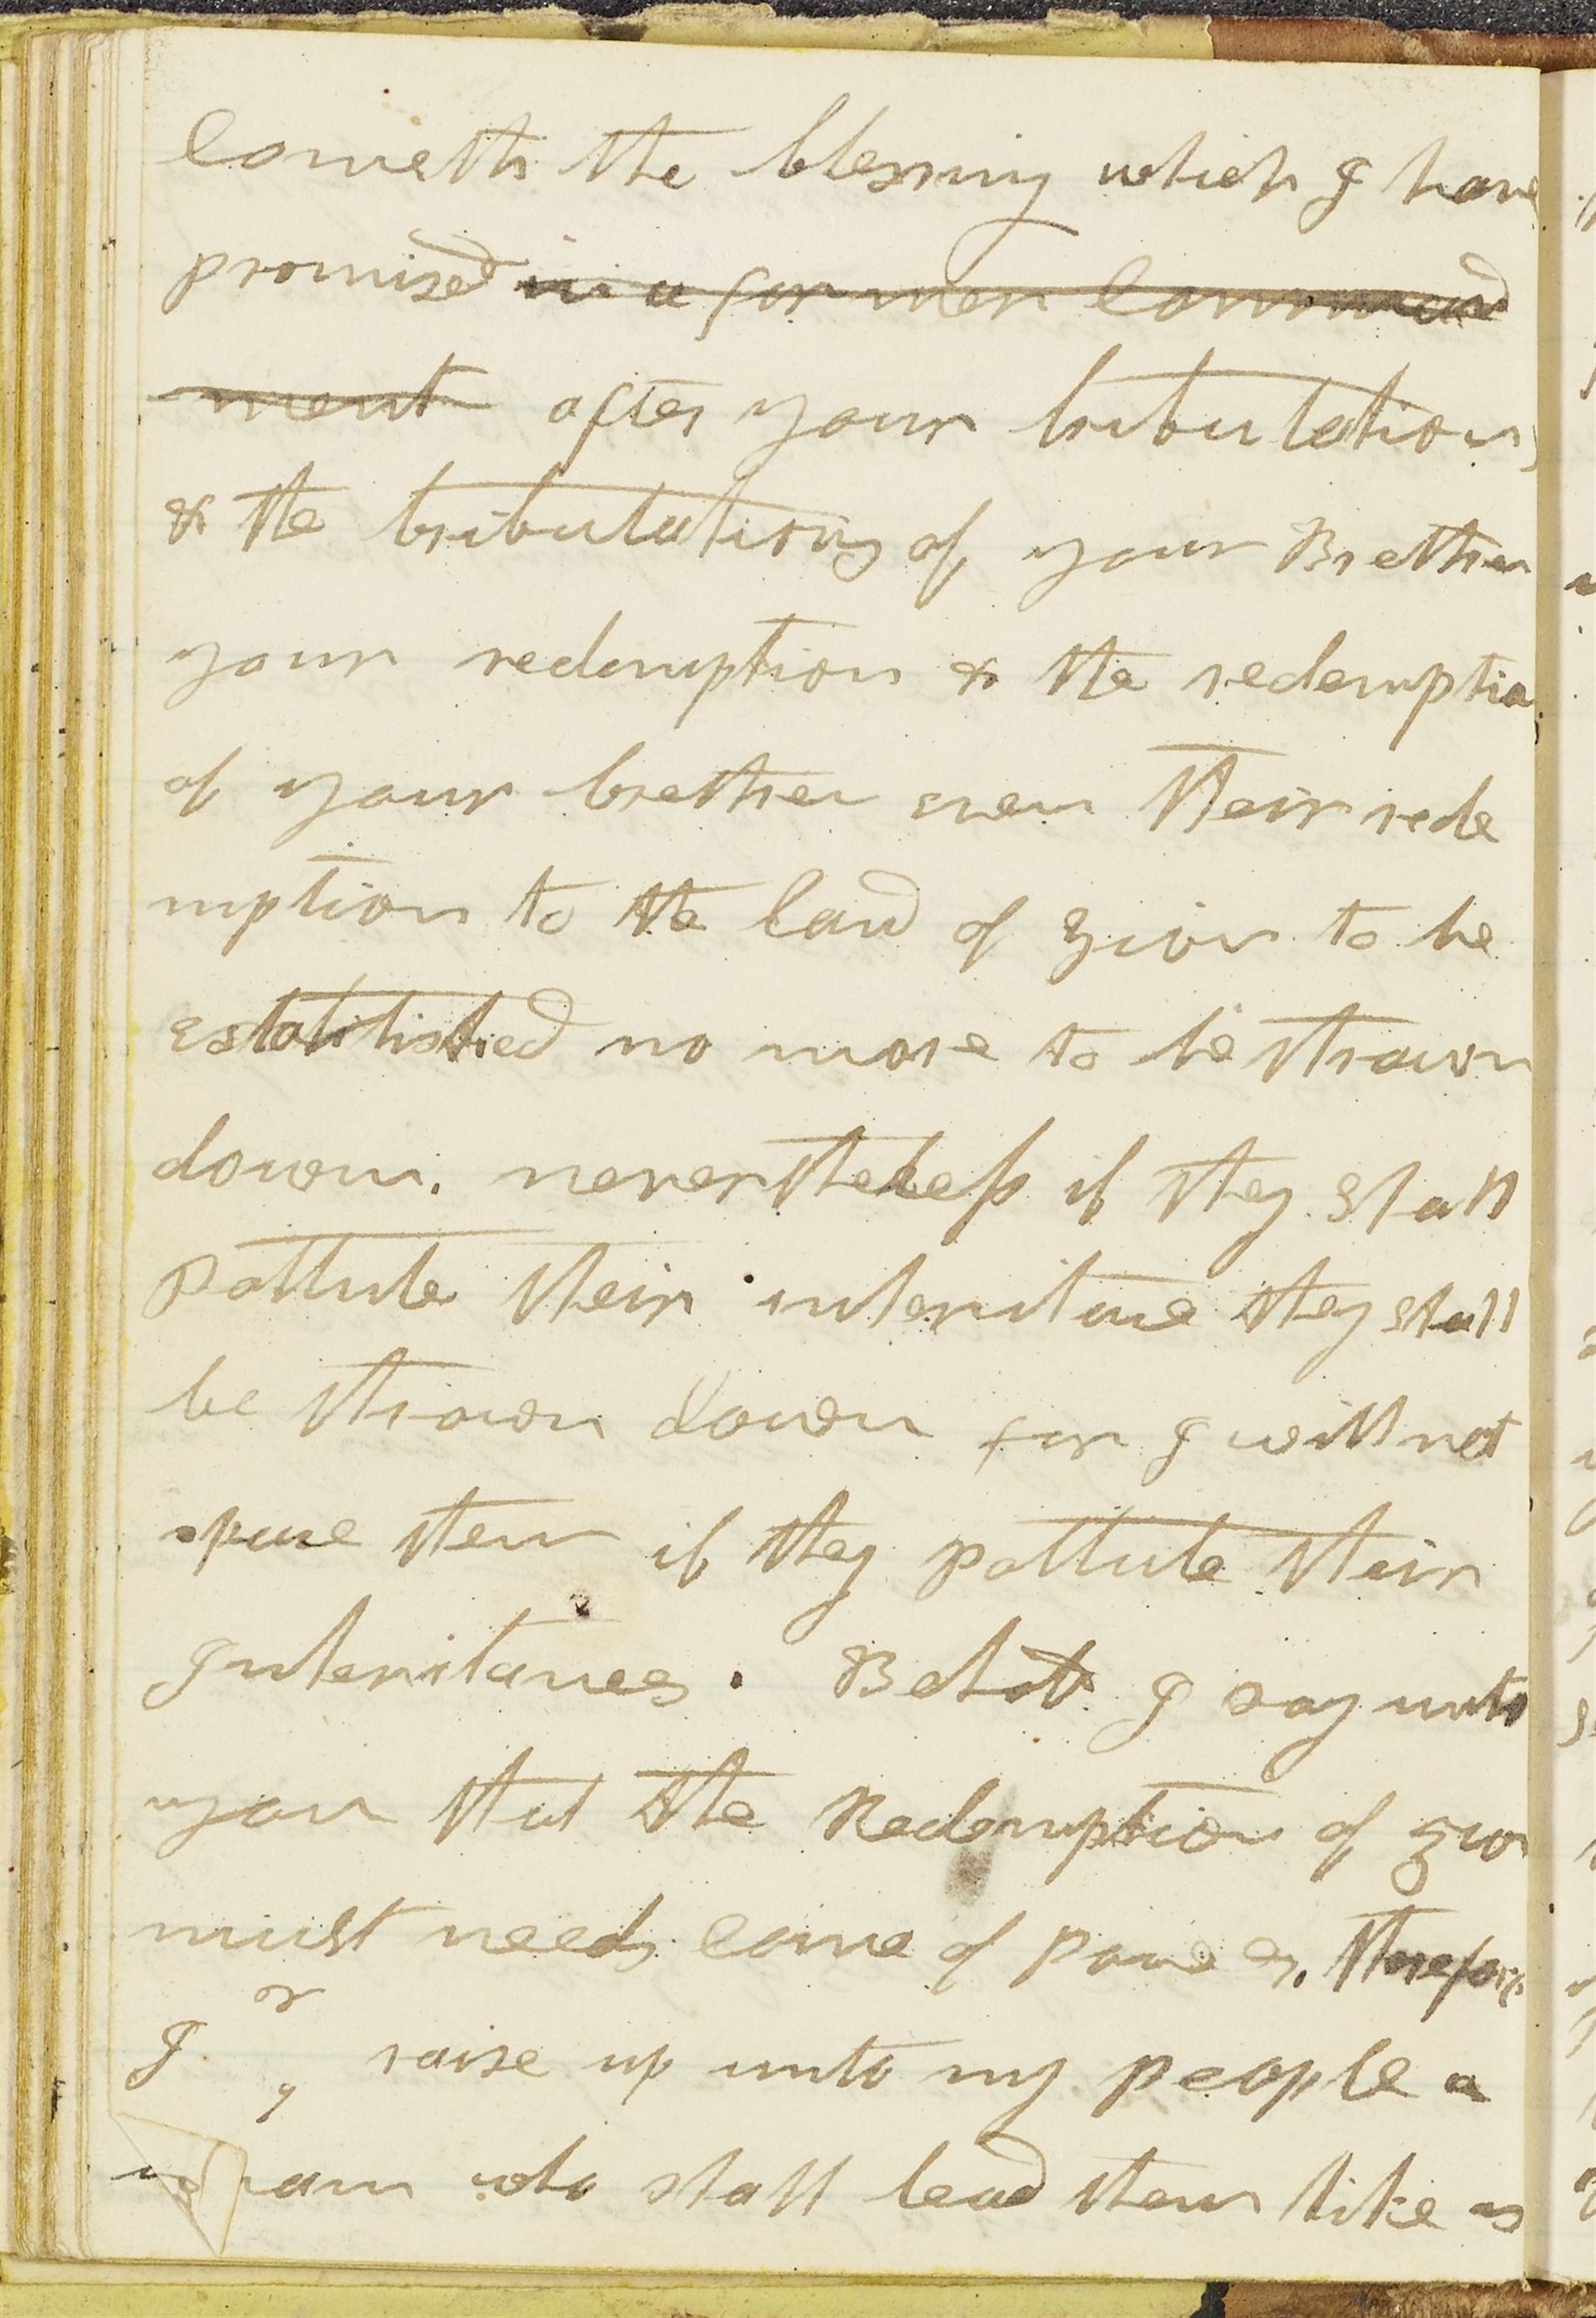 Cometh the blessing which I have
promised in a former Command
ment after your tribulations
& the tribulations of your Brethen
your redemption & the redemptio
of your brethen even their rede
mption to the land of Zion to be
established no more to be thrown
down. nevertheless if they shall
Pollute their inheritance they shall
be thrown down for I will not
spare them if they pollute their
Inheritances. Behold I say unto
you that the Redemption of Zion
must needs come of power, therefore
I raise up unto my people a
man who shall lead them like as